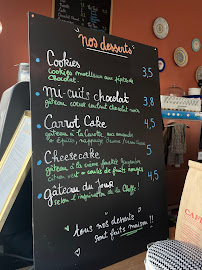 nos desserts
Cookies
Cookies moelleux aux pépites de
chocolat
3,5
mi-cuits chocolat
gâteau cœur coulant chocolat noir
3,8
Carrot Cake
gâteau à la carotte aux amandes
épices, nappage
4,5
Cheesecake
gâteau à la crème
citron vert coulis de fruits rouges
5
gâteau du Jour
selon l'inspiration de la Cheffe!
4,5
Tous nos desserts
sont fruits maison!!
CAP